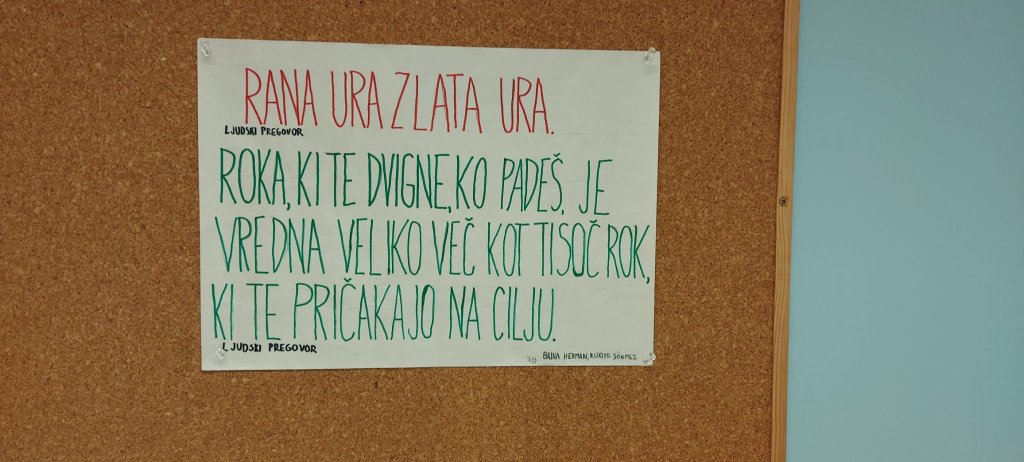 RANA URA ZLATA URA.
LJUDSKI PREGOVOR
ROKA, KI TE DVIGNE, KO PADEŠ, JE
VREDNA VELIKO VEČ KOT TISOČ ROK,
KI TE PRIČAKAJO NA CILJU.
LJUDSKI PREGOVOR
HERMAN, SÖNMEZ